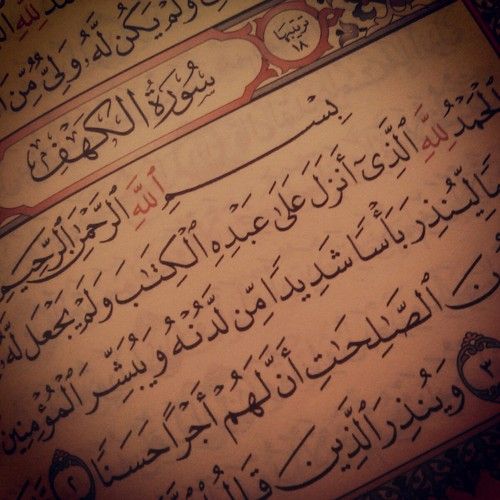 لِلَّهِ وَلَمْ يَكُن لَّهُۥ وَلِىٌّ مِّنَ
سُورَةُ الْكَهْفِ
ترتيبها ١٨
بِسْمِ ٱللَّهِ ٱلرَّحْمَٰنِ ٱلرَّحِيمِ
ٱلْحَمْدُ لِلَّهِ ٱلَّذِىٓ أَنزَلَ عَلَىٰ عَبْدِهِ ٱلْكِتَٰبَ وَلَمْ يَجْعَل لَّهُۥ
لِّيُنذِرَ بَأْسًا شَدِيدًا مِّن لَّدُنْهُ وَيُبَشِّرَ ٱلْمُؤْمِنِينَ
ٱلصَّٰلِحَٰتِ أَنَّ لَهُمْ أَجْرًا حَسَنًا ٢
٣ وَيُنذِرَ ٱلَّذِينَ قَالُوا۟